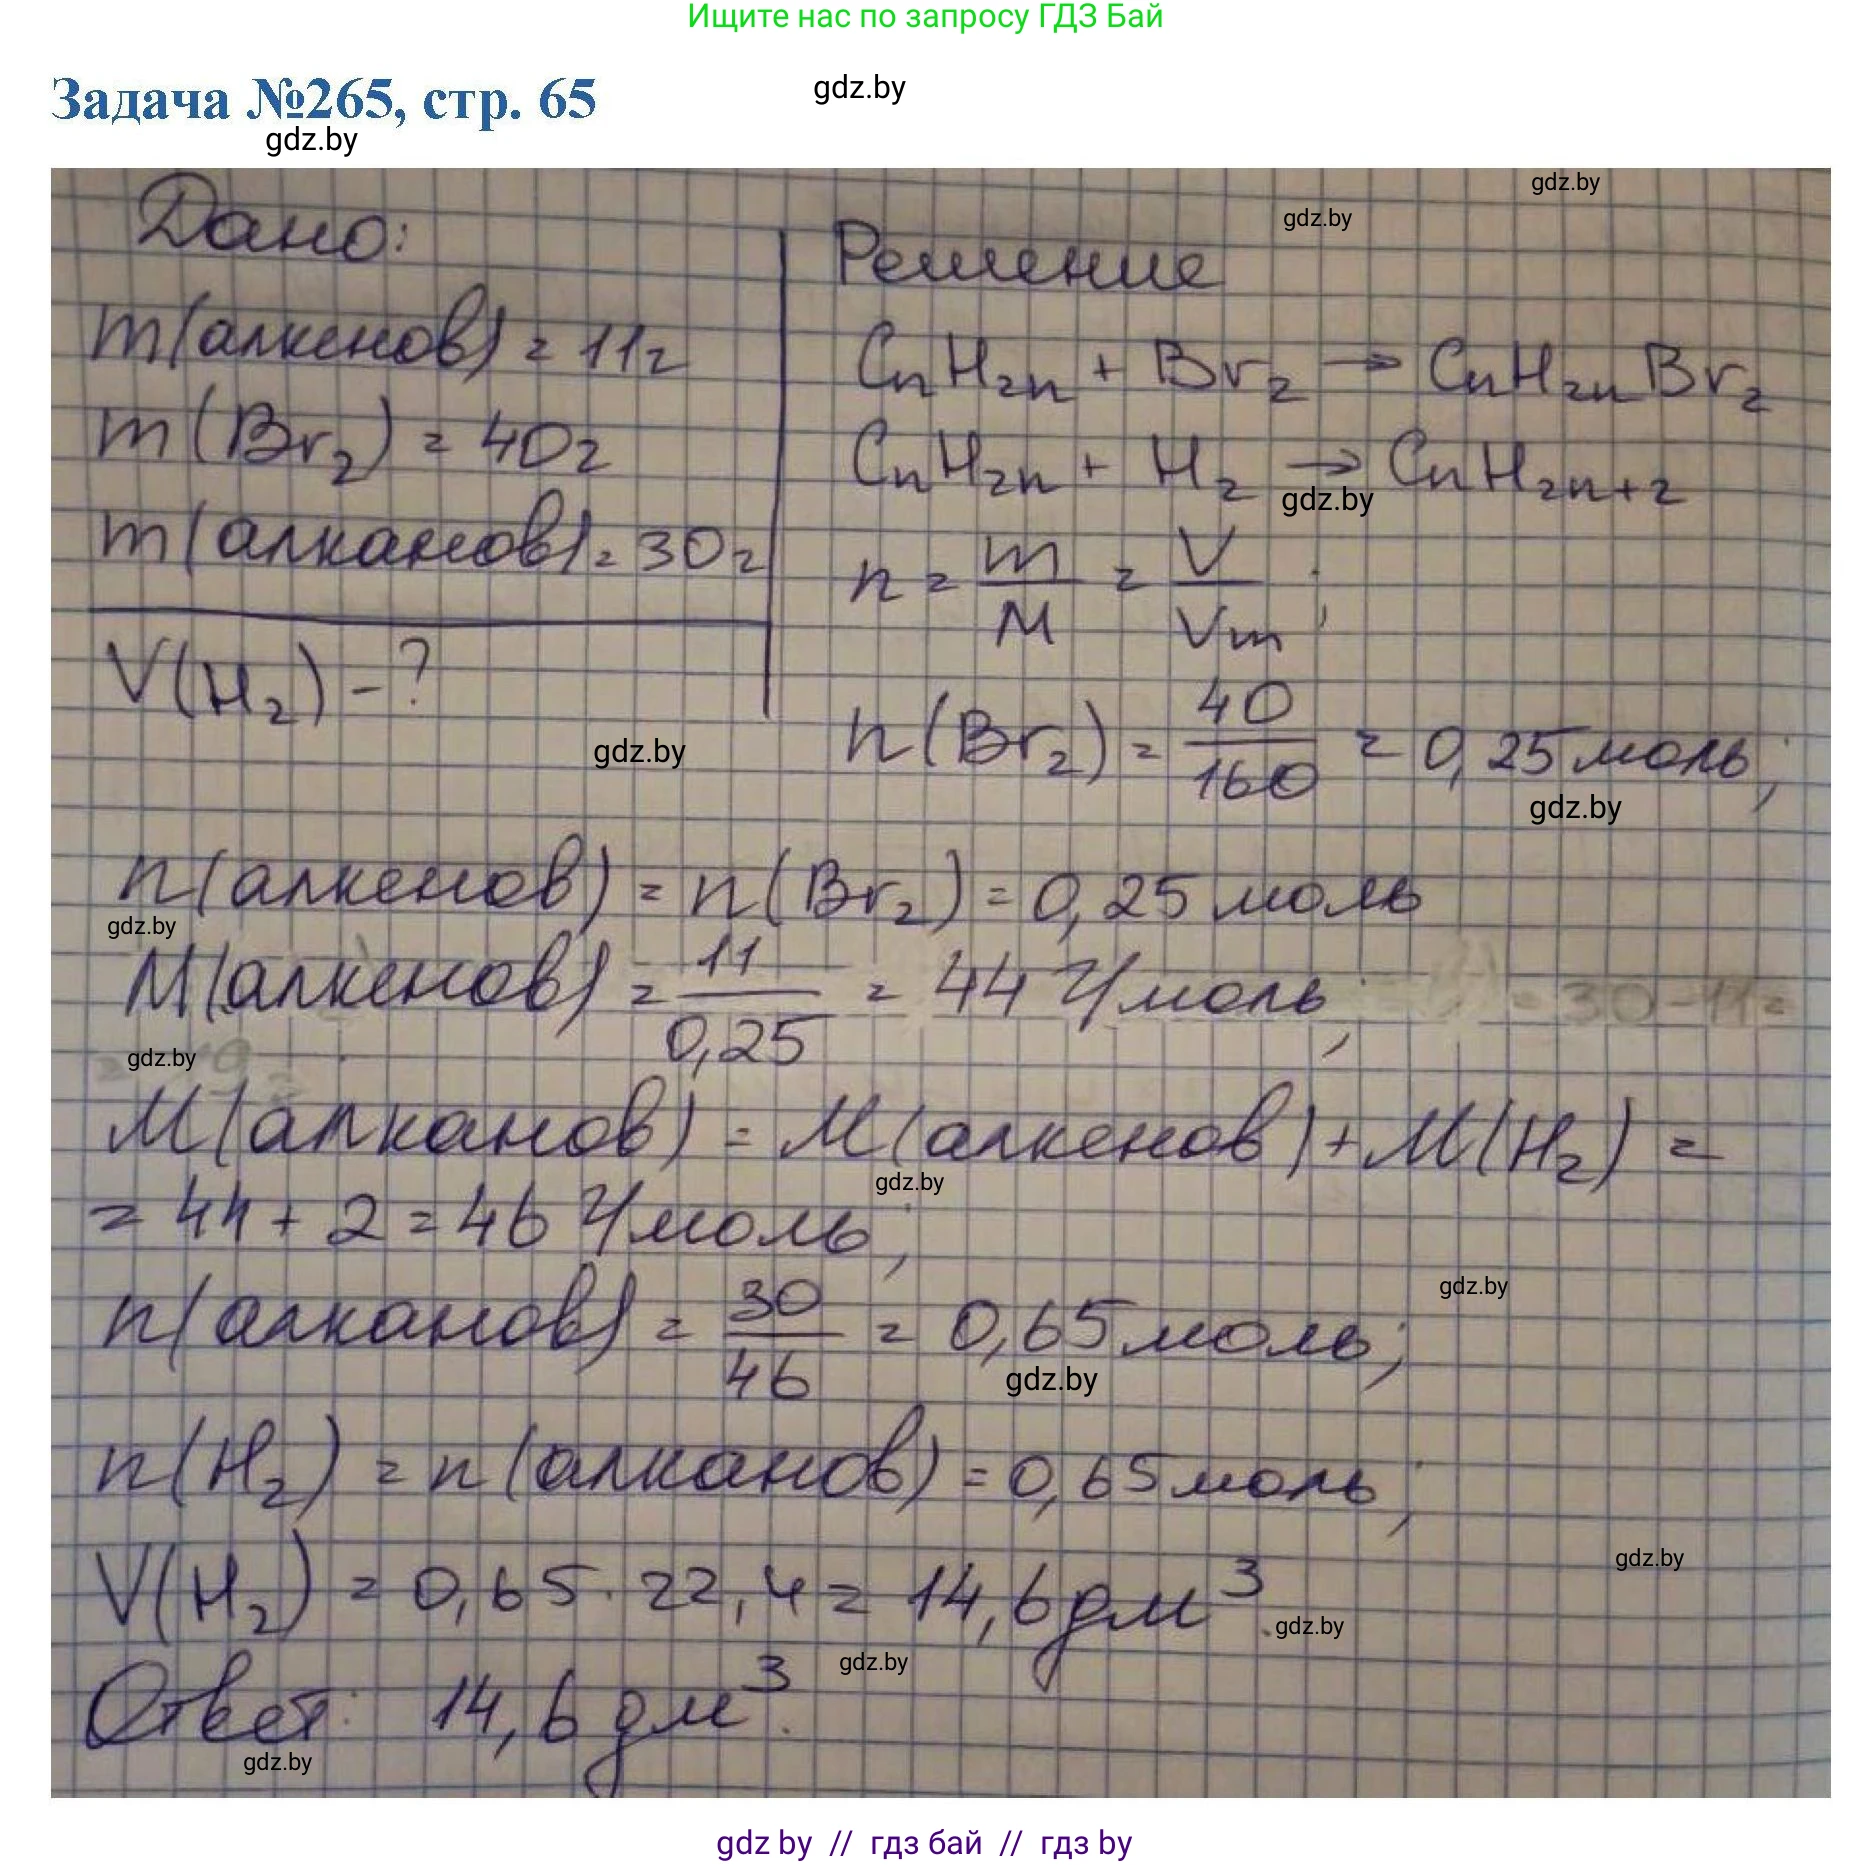 Ищите нас по запросу ГДЗ Бай
Задача №265, стр. 65
gdz.by
gdz.by
gdz.by
gdz.by
Дано:
m(алкенов) = 11г
m(Br₂) = 40г
m(алканов) = 30г
V(H₂) - ?
gdz.by
Решение
CnH₂n + Br₂ → CnH₂nBr₂
CnH₂n + H₂ → CnH₂n+₂
gdz.by
n = m/M = V/Vm ;
n(Br₂) = 40/160 = 0,25 моль;
gdz.by
n(алкенов) = n(Br₂) = 0,25 моль
gdz.by
M(алкенов) = 11/0,25 = 44 г/моль; = 30-11=
gdz.by
M(алканов) = M(алкенов) + M(H₂) =
gdz.by
= 44 + 2 = 46 г/моль;
gdz.by
n(алканов) = 30/46 = 0,65 моль;
gdz.by
n(H₂) = n(алканов) = 0,65 моль;
gdz.by
V(H₂) = 0,65 · 22,4 = 14,6 дм³.
gdz.by
gdz.by
Ответ: 14,6 дм³.
gdz.by
gdz by // гдз бай // гдз by